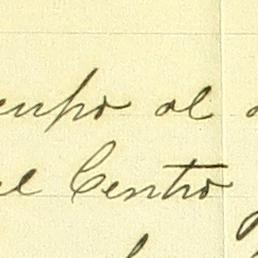 empo al
el Centro